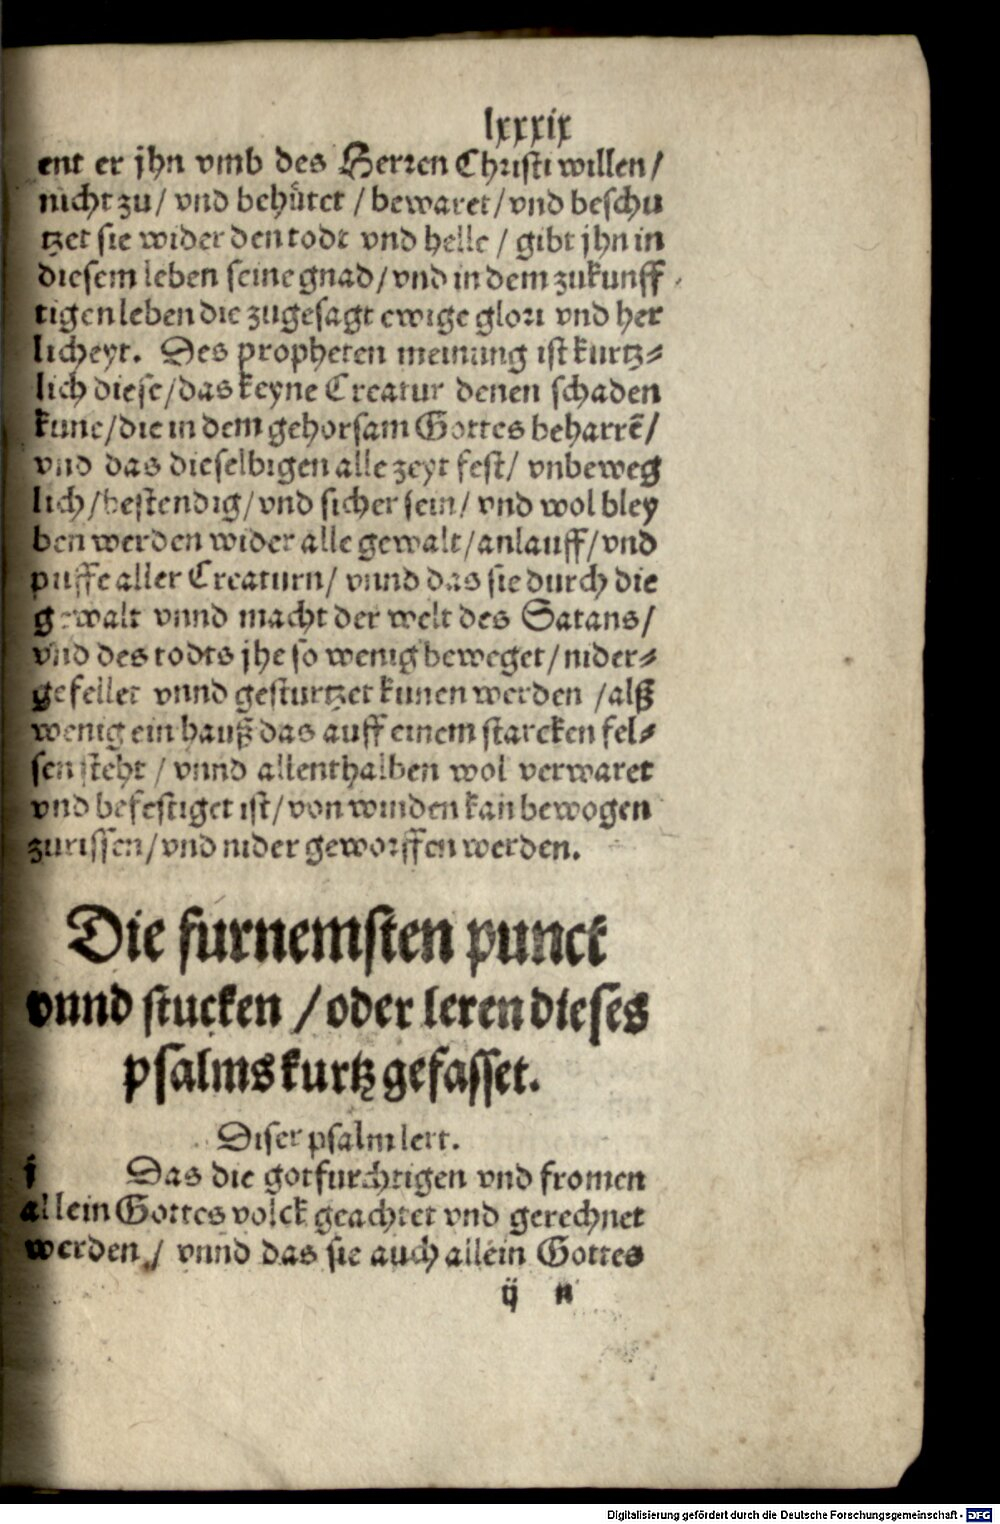 lxxxix
ent er jhn vmb des Herren Christi willen/
nicht zu/ vnd behuͤtet / bewaret/ vnd beschu
tzet sie wider den todt vnd helle / gibt jhn in
diesem leben seine gnad/ vnd in dem zukunff
tigen leben die zugesagt ewige glori vnd her
licheyt. Des propheten meinung ist kurtz⸗
lich diese/ das keyne Creatur denen schaden
kune/ die in dem gehorsam Gottes beharrẽ/
vnd das dieselbigen alle zeyt fest/ vnbeweg
lich/ bestendig/ vnd sicher sein/ vnd wol bley
ben werden wider alle gewalt/ anlauff/ vnd
puffe aller Creaturn/ vnnd das sie durch die
gewalt vnnd macht der welt des Satans/
vnd des todts jhe so wenig beweget/ nider⸗
gefellet vnnd gesturtzet kunen werden /alß
wenig ein hauß das auff einem starcken fel⸗
sen steht / vnnd allenthalben wol verwaret
vnd befestiget ist/ von winden kan bewogen
zurissen/ vnd nider geworffen werden.
Die furnemsten punct
vnnd stucken / oder leren dieses
psalms kurtz gefasset.
Diser psalm lert.
j Das die gotfurchtigen vnd fromen
allein Gottes volck geachtet vnd gerechnet
werden / vnnd das sie auch allein Gottes
ij n
Digitalisierung gefördert durch die Deutsche Forschungsgemeinschaft - DFG